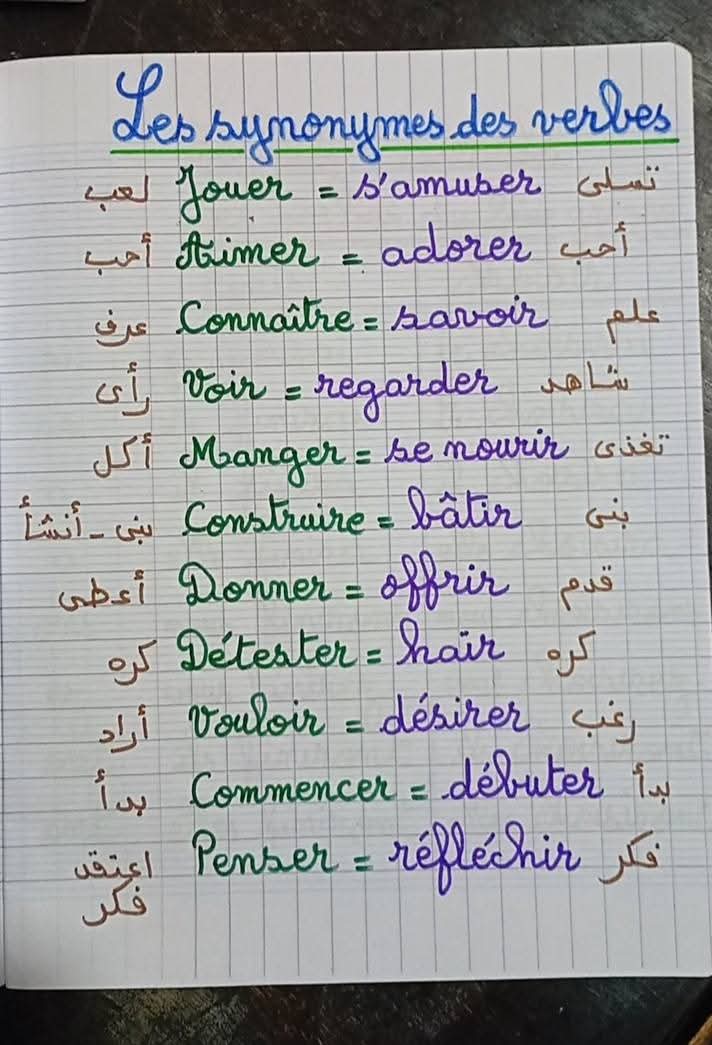 Les synonymes des verbes
لعب Jouer = s'amuser تسلى
أحب Aimer = adorer أحب
عرف Connaître = savoir علم
رأى Voir = regarder شاهد
أكل Manger = se nourir تغذى
بنى - أنشأ Construire = bâtir بنى
أعطى Donner = offrir قدم
كره Détester = haïr كره
أراد Vouloir = désirer رغب
بدأ Commencer = débuter بدأ
اعتقد Penser = réfléchir فكر
فكر